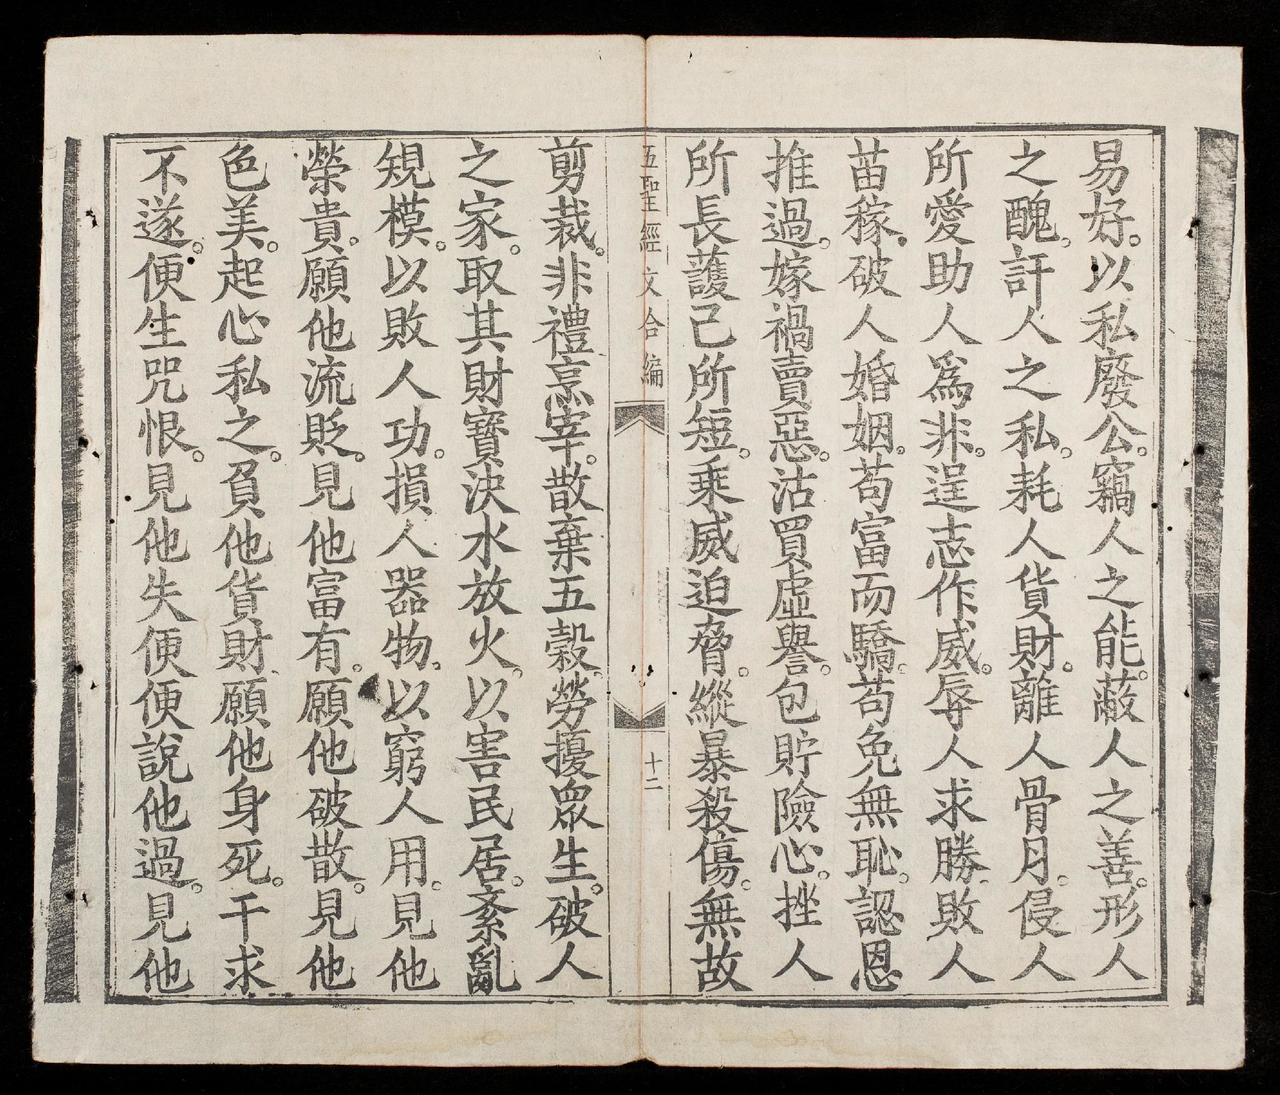 易好。以私廢公。竊人之能。蔽人之善。形人
之醜。訐人之私。耗人貨財。離人骨月。侵人
所愛助人爲非。逞志作威。辱人求勝。敗人
苗稼。破人婚姻。苟富而驕。苟免無恥。認恩
推過。嫁禍賣惡。沽買虛譽。包貯險心。挫人
所長護己所短。乗威迫脅。縱暴殺傷。無故
五聖經文合編
十二
剪裁。非禮烹宰。散棄五穀。勞擾眾生。破人
之家。取其財寶決水放火。以害民居。紊亂
規模。以敗人功。損人器物。以窮人用。見他
榮貴。願他流貶。見他富有。願他破散。見他
色美。起心私之。負他貨財。願他身死。干求
不遂。便生咒恨。見他失便便說他過。見他